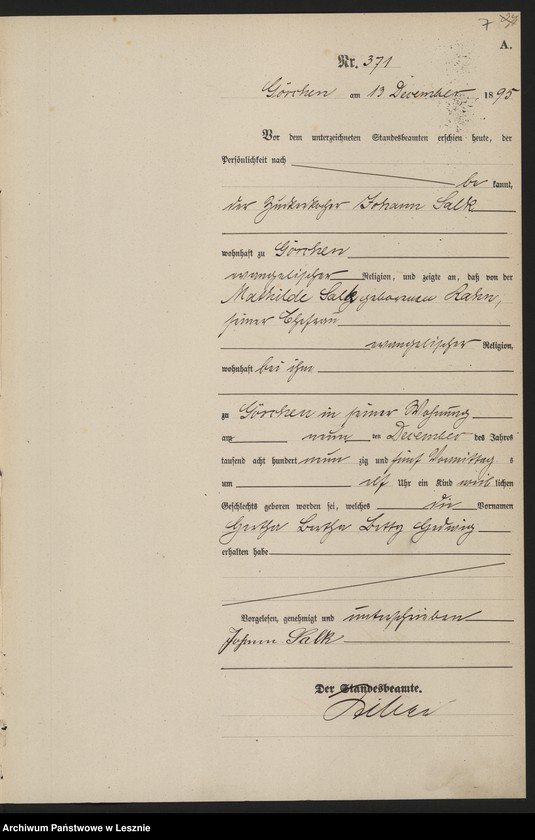 7
A.
Nr. 371
Görchen am 13 December 1895
Vor dem unterzeichneten Standesbeamten erschien heute, der
Persönlichkeit nach
be kannt,
der Zuckerkocher Johann Salk
wohnhaft zu Görchen
evangelischer Religion, und zeigte an, daß von der
Mathilde Salk geborenen Rahn,
seiner Ehefrau
evangelischer Religion,
wohnhaft bei ihm
zu Görchen in seiner Wohnung
am neun ten December des Jahres
tausend acht hundert neun zig und fünf Vormittag s
um elf Uhr ein Kind weib lichen
Geschlechts geboren worden sei, welches die Vornamen
Bertha Betty Hedwig
erhalten habe
Vorgelesen, genehmigt und unterschrieben
Johann Salk
Der Standesbeamte.
Archiwum Państwowe w Lesznie